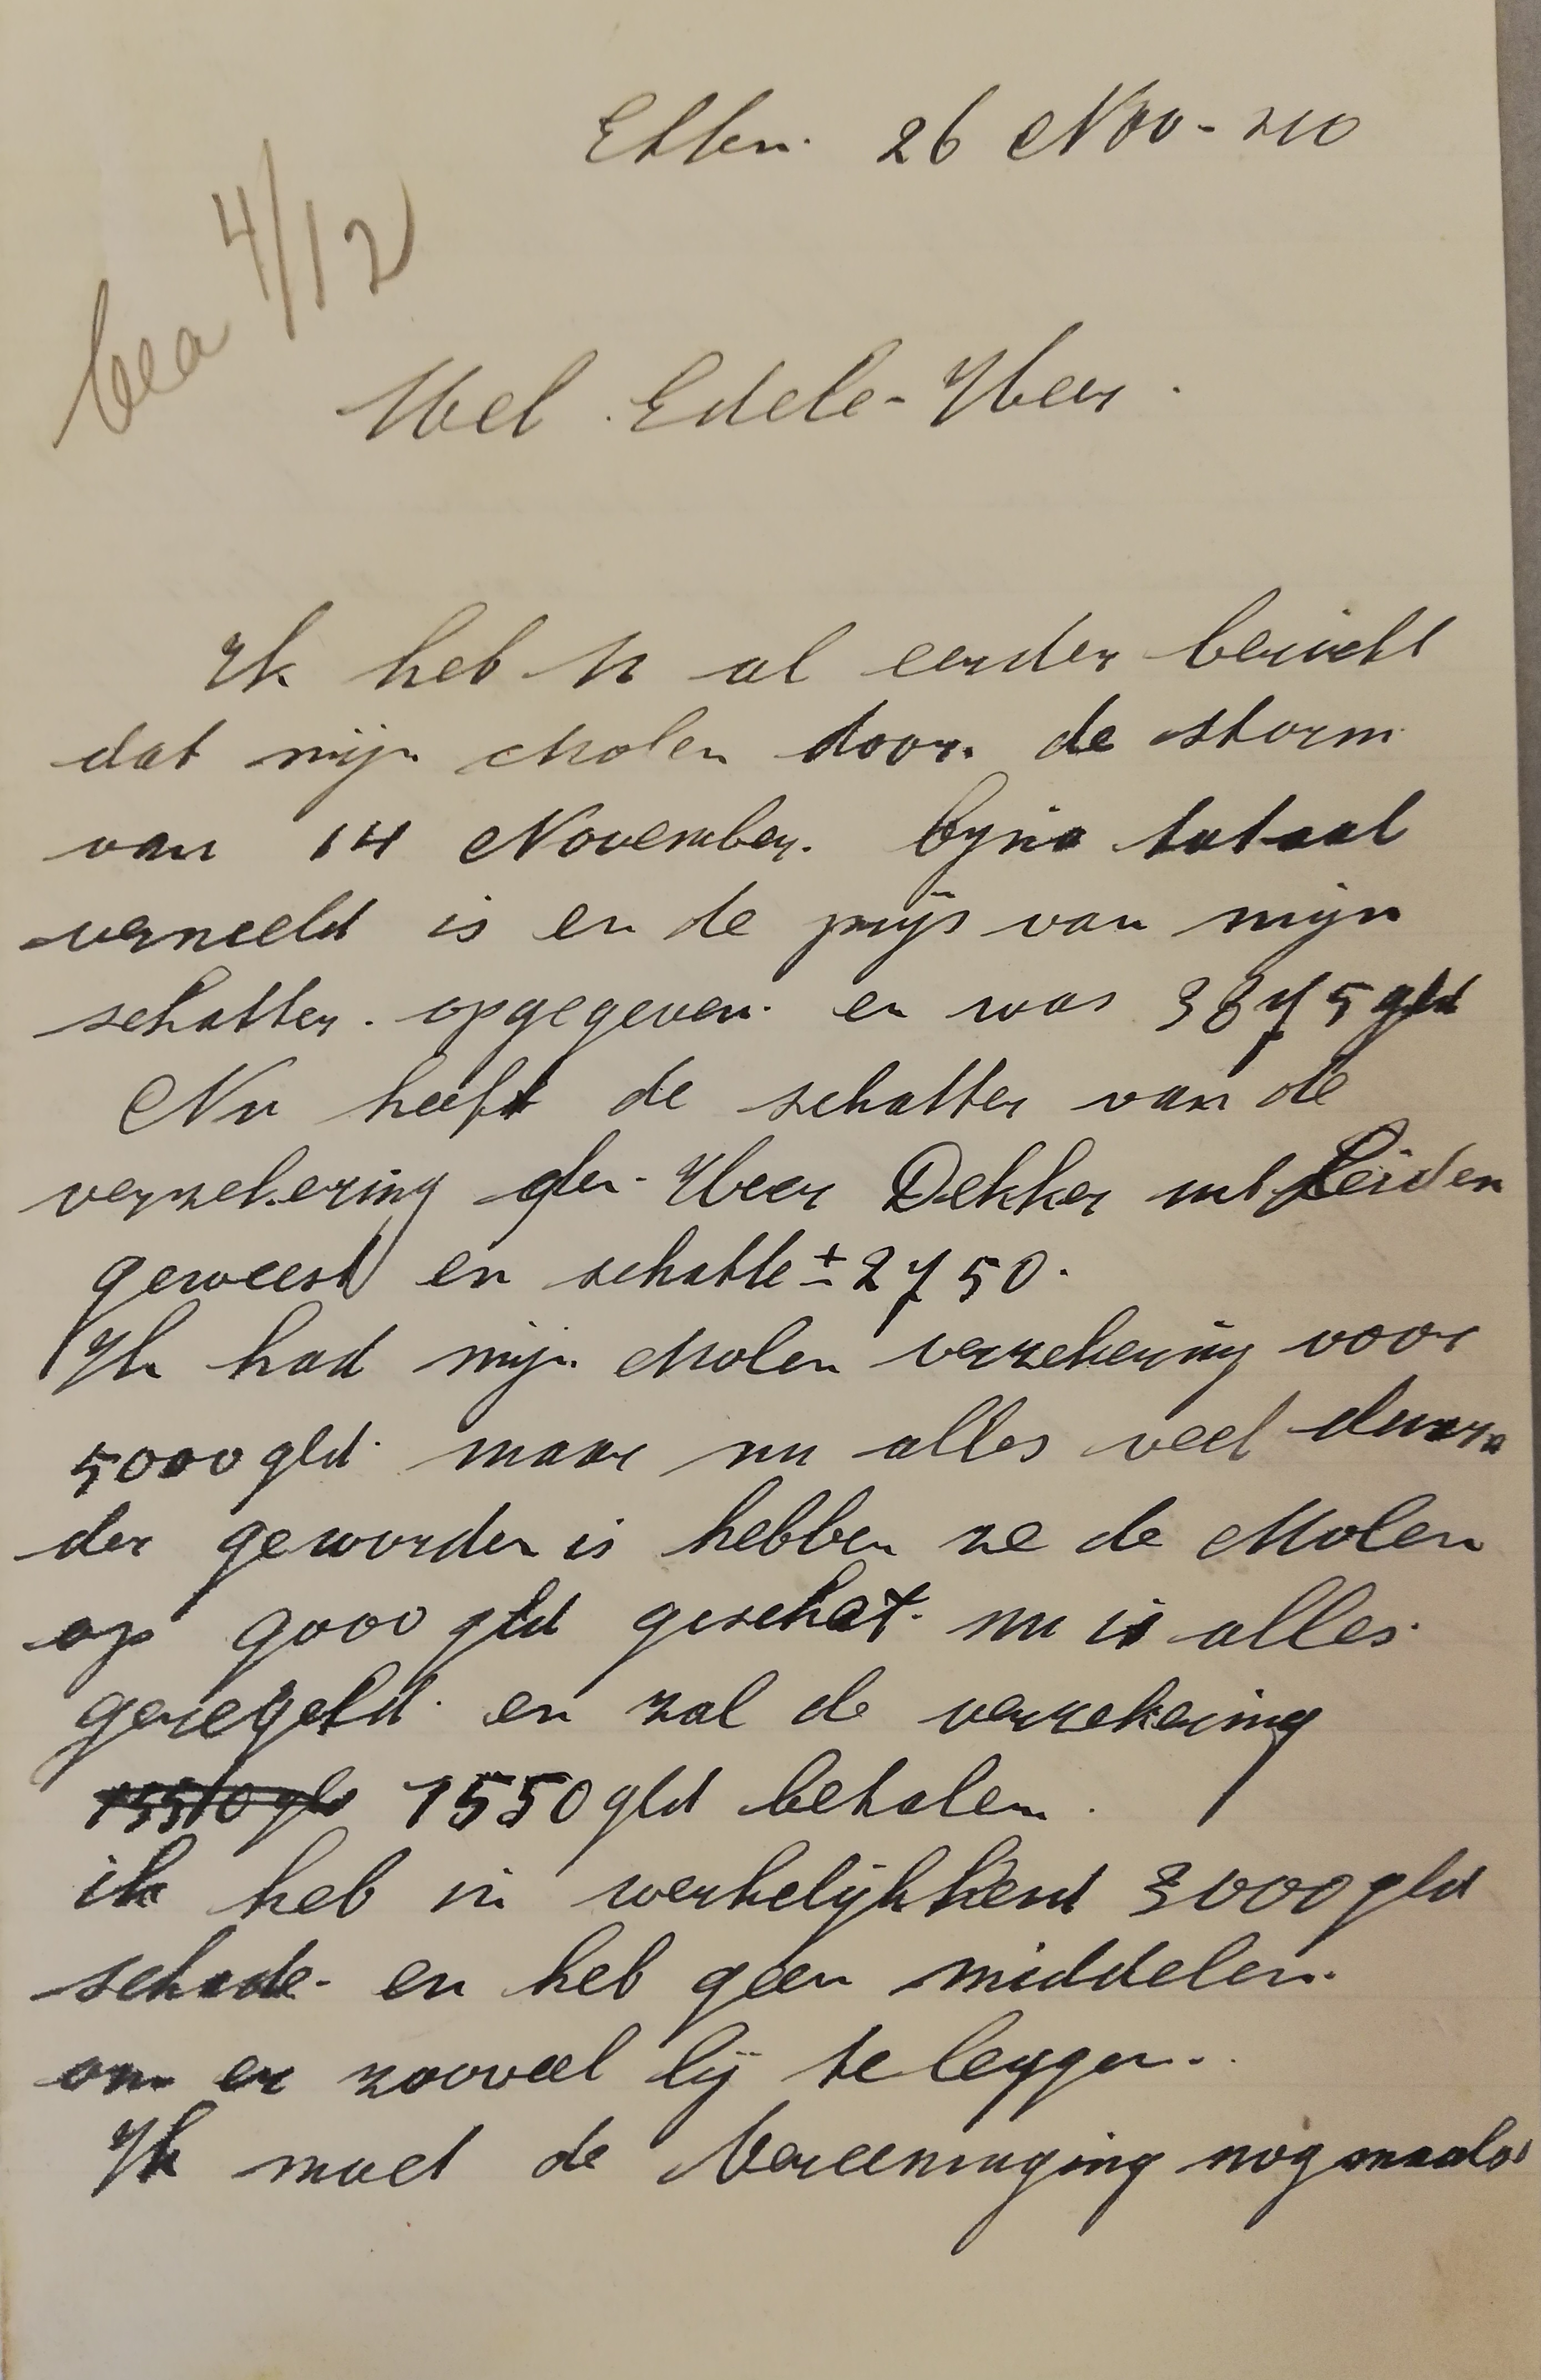 Etten. 26 Nov - 40
bea 4/12
Wel Edele - Heer.
Ik heb U al eerder bericht
dat mijn Molen door. de storm
van 14 November. byna totaal
verneeld is en de prijs van mijn
schatter. opgegeven. en was 3875 gld
Nu heeft de schatter van de
verzekering den. Heer Dekker uit Leiden
geweest en schatte ± 2750.
Ik had mijn Molen verzekering voor
5000 gld. maar nu alles veel duurn
der geworden is hebben ze de Molen
op 9000 gld geschat. nu is alles.
geregeld. en zal de verzekering
1550 gld 1550 gld betalen.
ik heb in werkelijkheid 3000 gld
schade - en heb geen middelen.
om er zooveel bij te leggen.
Ik moet de Vereeniging nogmaals